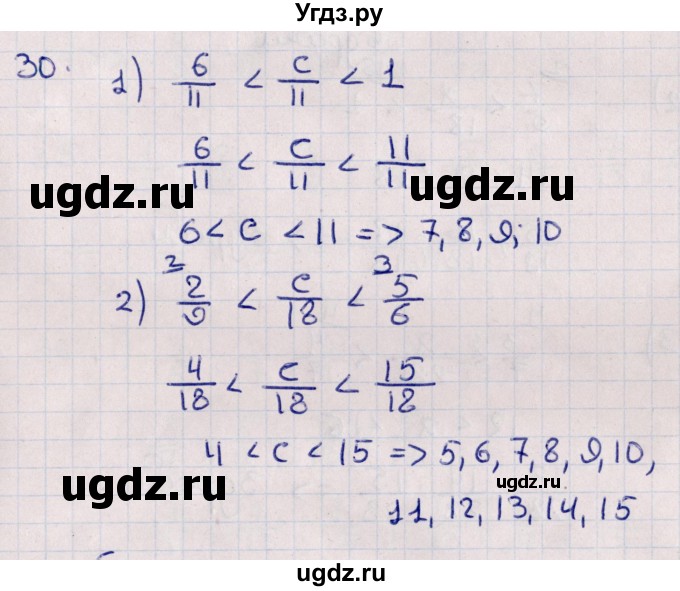 Угдз.ру
30. 1) 6/11 < c/11 < 1
6/11 < c/11 < 11/11
ugdz.ru ugdz.ru
6 < c < 11 => 7, 8, 9; 10
2) 2/9 (2 < c/18 < (3 5/6
4/18 < c/18 < 15/18
4 < c < 15 => 5, 6, 7, 8, 9, 10,
ugdz.ru ugdz.ru
11, 12, 13, 14, 15
ugdz.ru